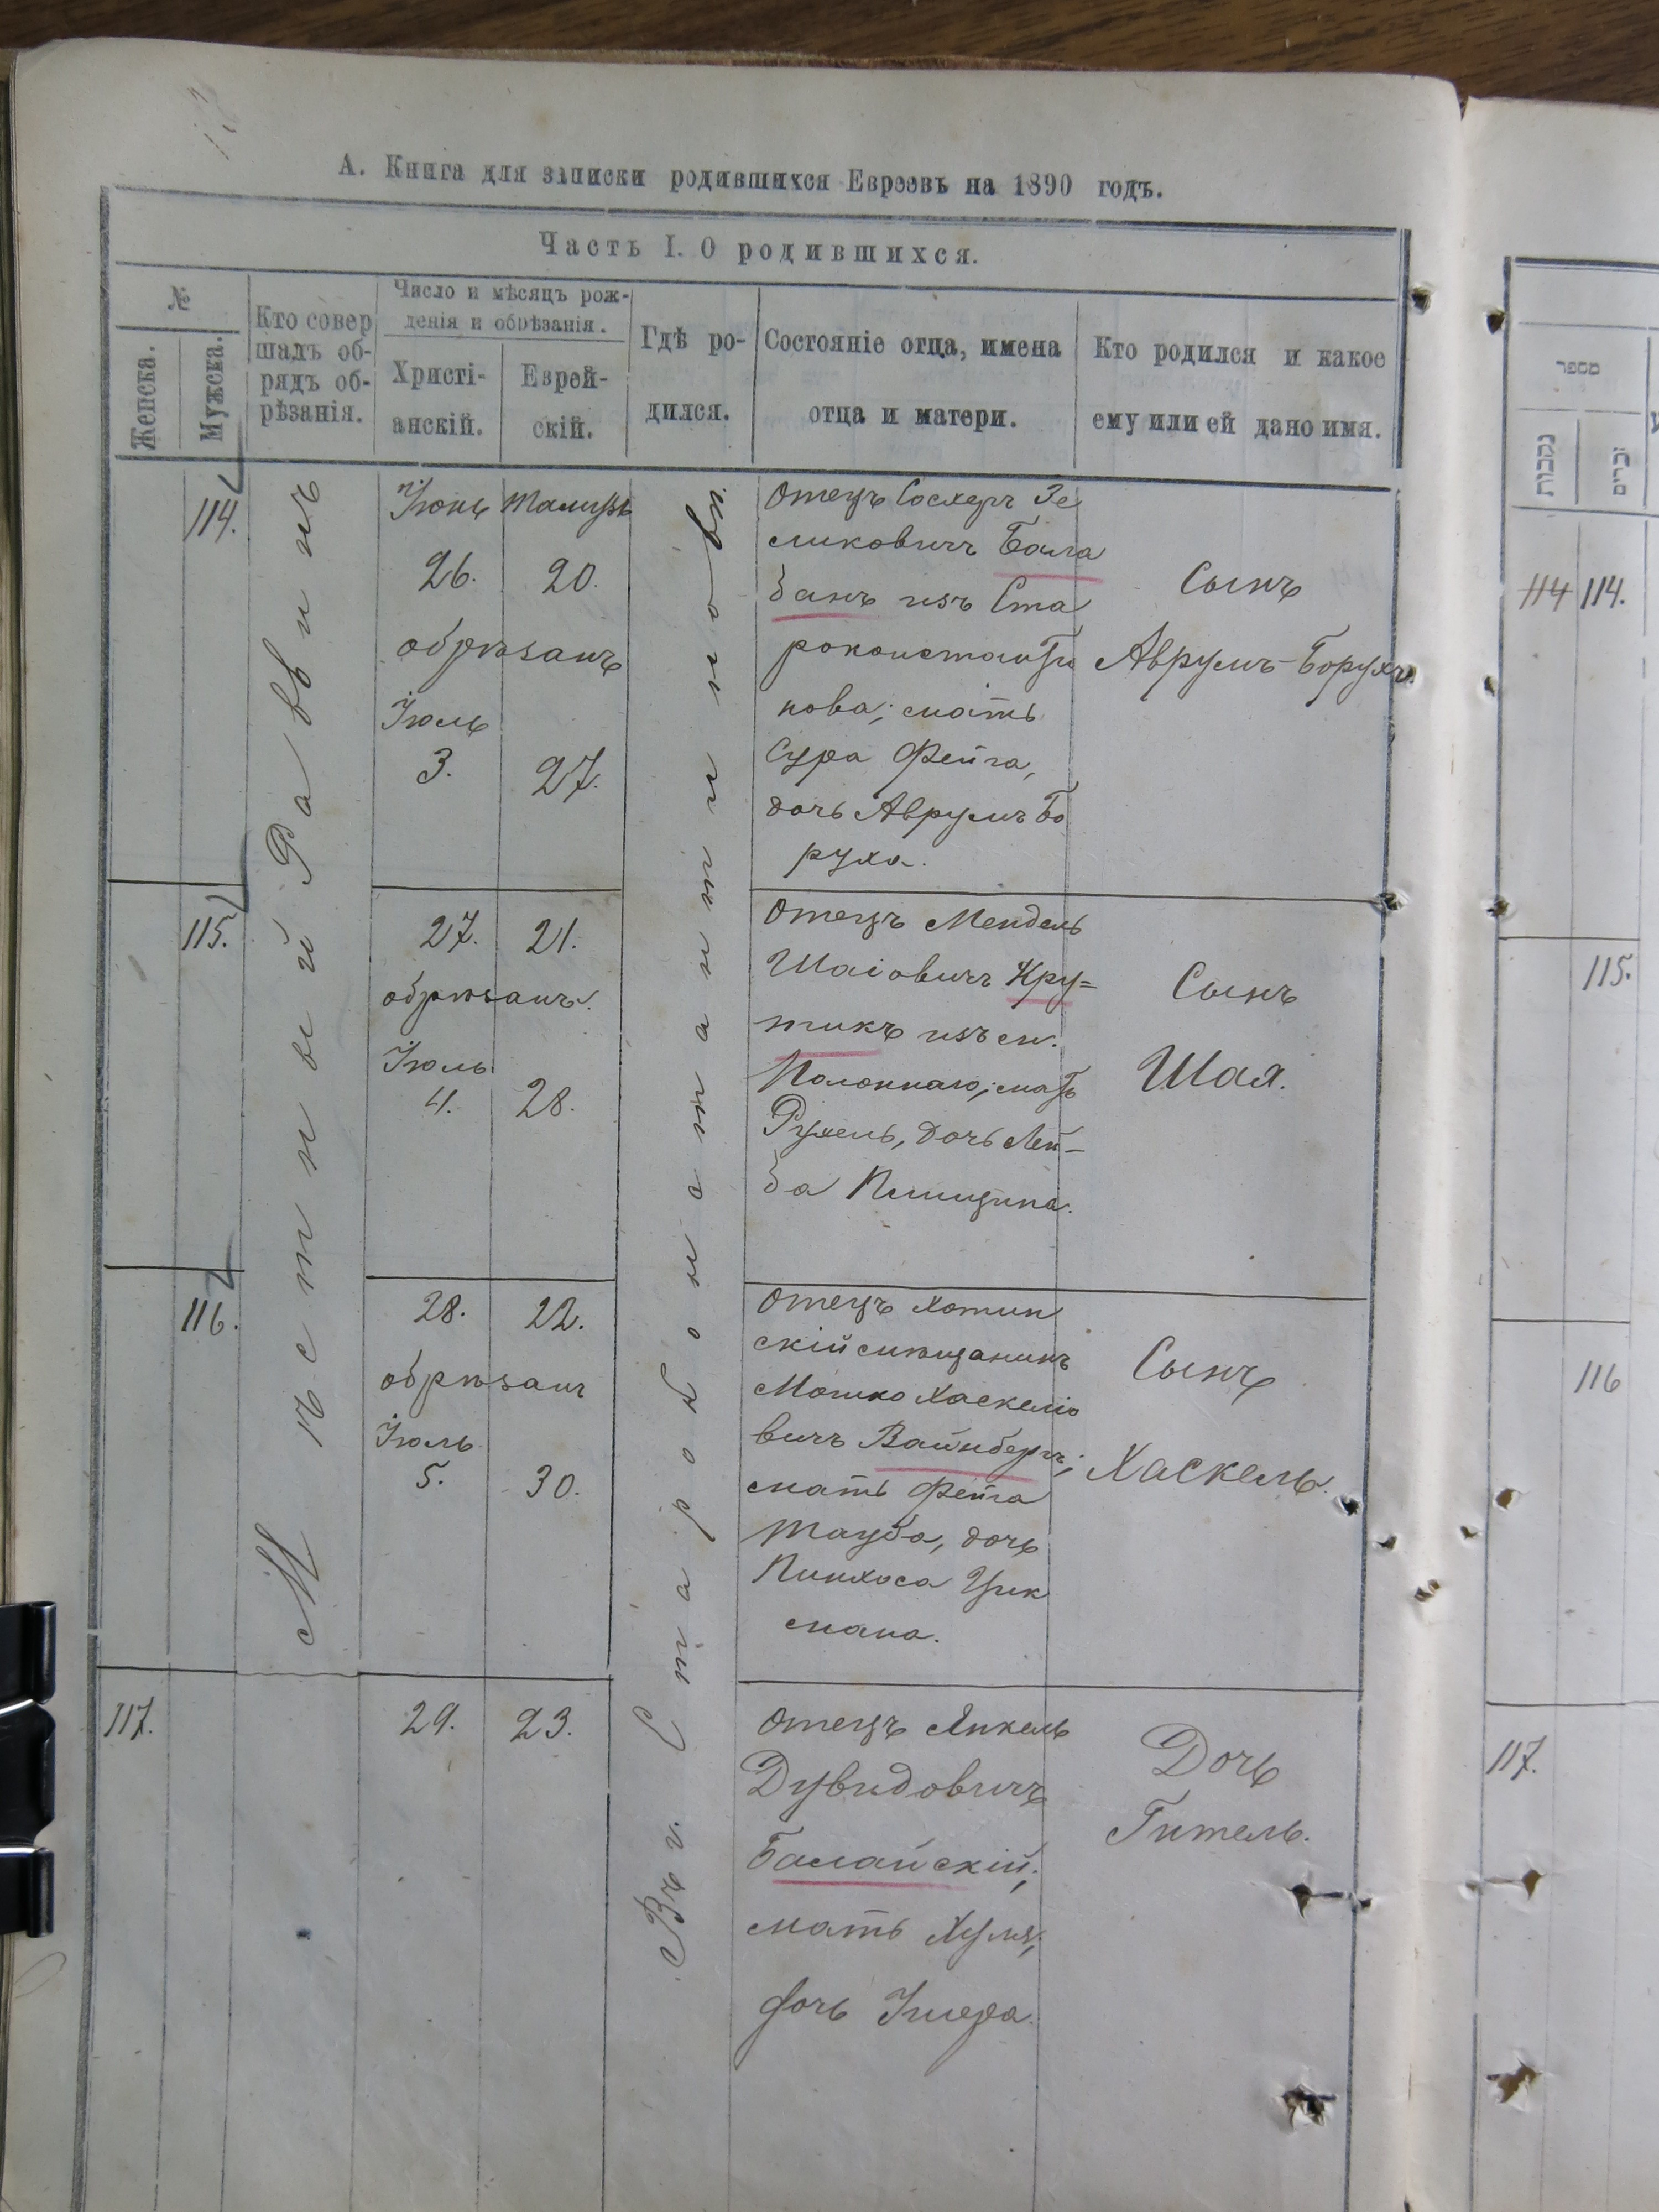 А. Книга для записки родившихся Евреевъ на 1890 годъ.
Часть I. О родившихся.
№
Женска.
Мужска.
Кто совер
шалъ об-
рядъ об-
рѣзанія.
Число и мѣсяцъ рож-
денія и обрѣзанія.
Христі-
анскій.
Еврей-
скій.
Гдѣ ро-
дился.
Состояніе отца, имена
отца и матери.
Кто родился и какое
ему или ей дано имя.
Мѣстный Раввинъ
Въ г. Староконстантиновѣ
114.
Іюнь Тамузъ
26. 20.
обрѣзанъ
Іюль
3. 27.
Отецъ Сосхеръ Зе
ликовичъ Бала
банъ изъ Ста
роконстанти
нова; мать
Сура Фейга,
дочь Аврумъ Бо
руха.
Сынъ
Аврумъ-Борухъ.
115.
27. 21.
обрѣзанъ.
Іюль
4. 28.
Отецъ Мендель
Шаіовичъ Кру=
тикъ изъ м.
Полоннаго; мать
Рухель, дочь Лей-
ба
Сынъ
Шая.
116.
28. 22.
обрѣзанъ
Іюль
5. 30.
Отецъ Хотин
скій мѣщанинъ
Мошко Хаскеліо
вичъ Вайнбергъ;
мать Фейга
Тауба, дочь
Пинхоса Цик
мана.
Сынъ
Хаскель.
117.
29. 23.
Отецъ Янкель
Дувидовичъ
Балайскій;
мать
дочь
Дочь
Гитель.
מספר
נקבות
זכרים
114 114.
115.
116
117.